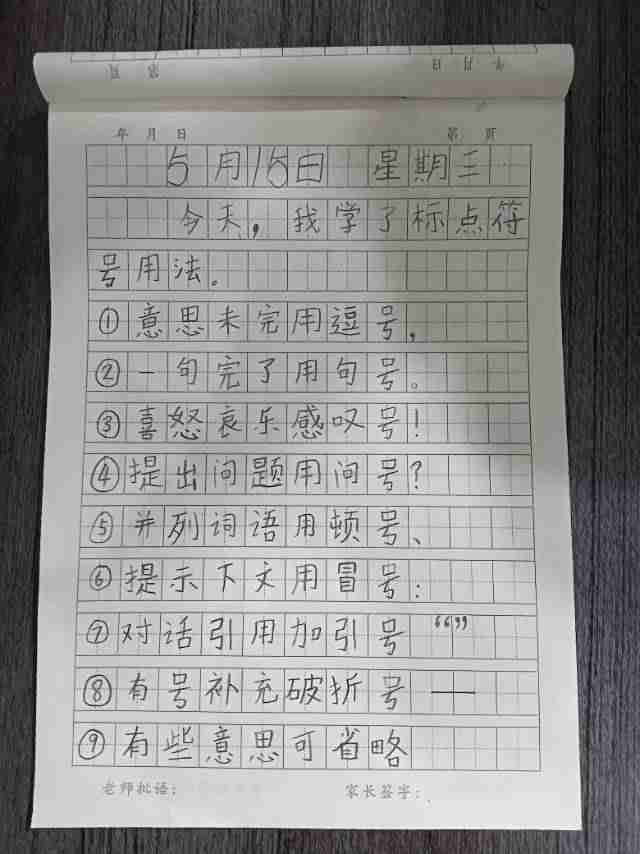 第 页
年 月 日
年 月 日 第 页
5月15日 星期三
今天,我学了标点符
号用法。
①意思未完用逗号,
②一句完了用句号。
③喜怒哀乐感叹号!
④提出问题用问号?
⑤并列词语用顿号、
⑥提示下文用冒号:
⑦对话引用加引号“”
⑧有号补充破折号——
⑨有些意思可省略
老师批语: 家长签字: